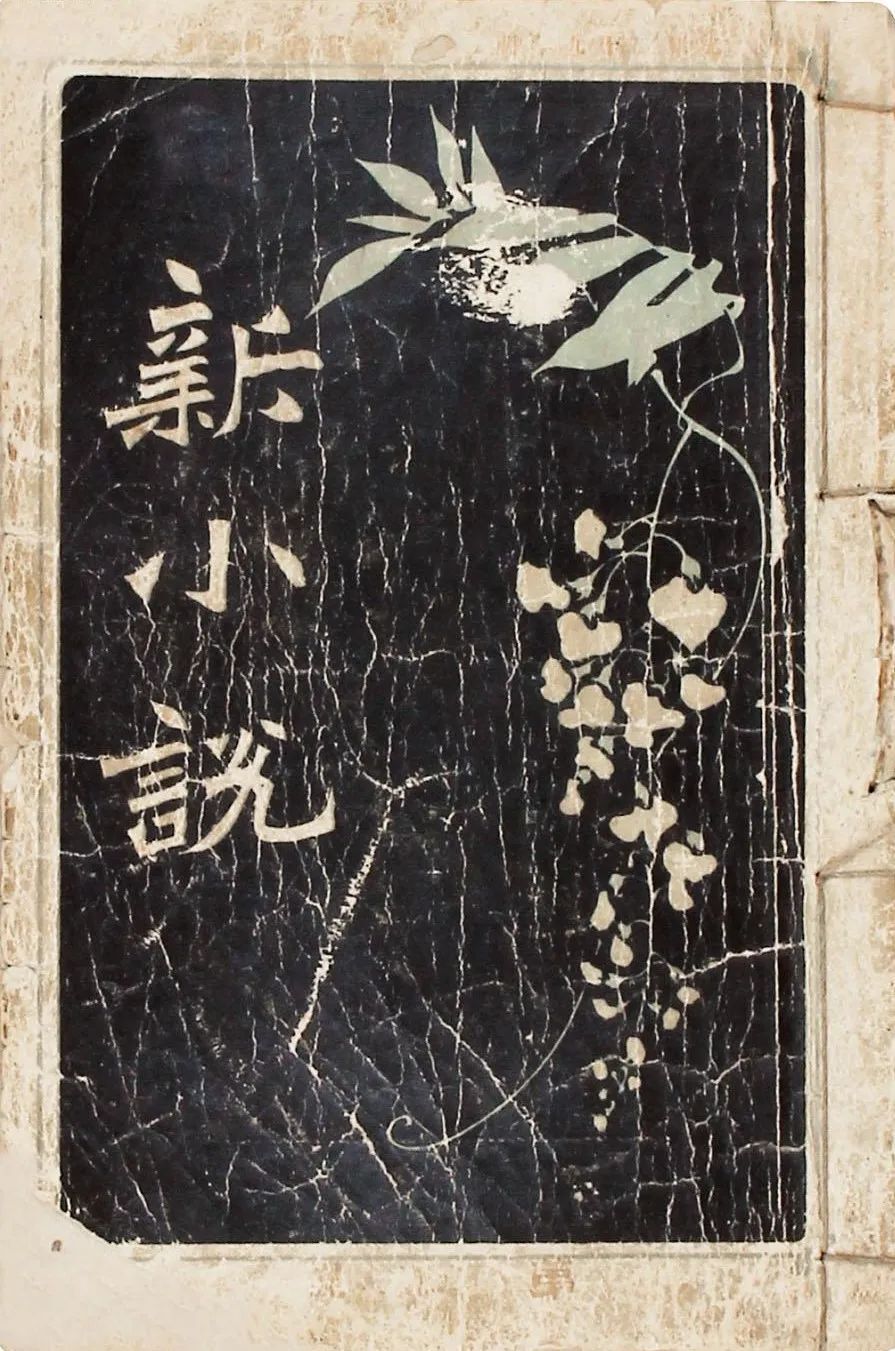 新小說